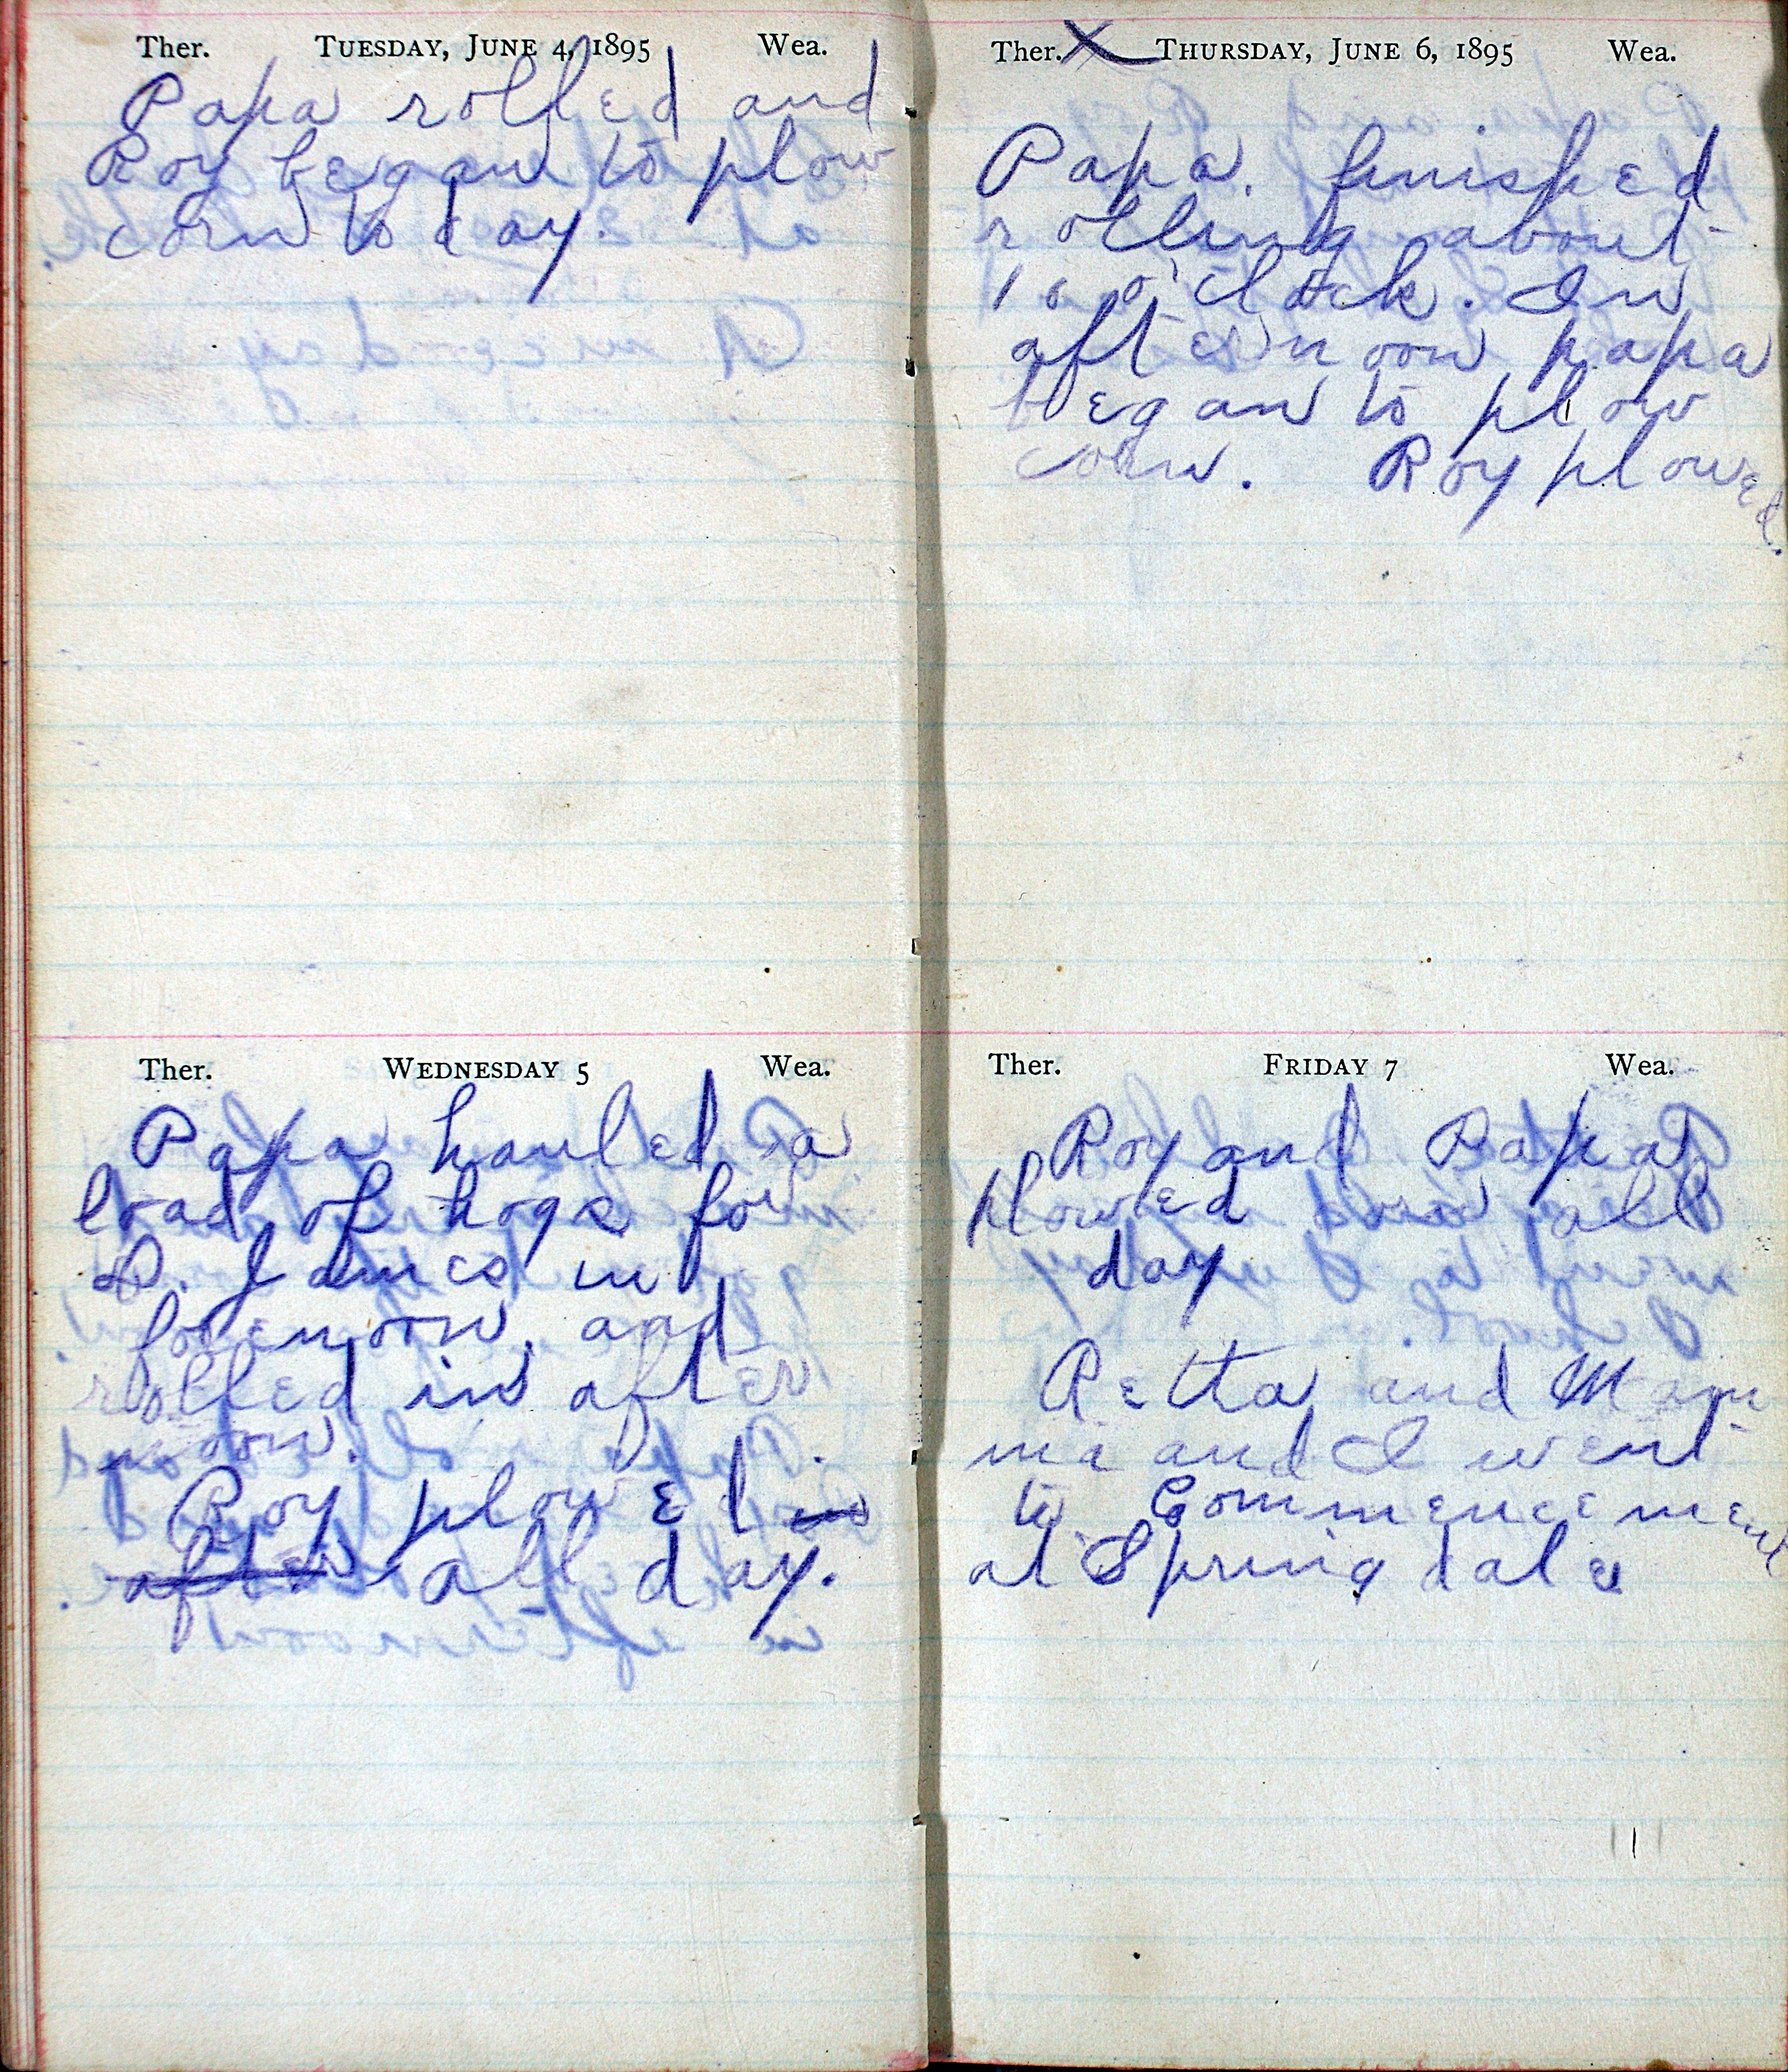 Ther. TUESDAY, JUNE 4, 1895 Wea.
Papa rolled and
Roy began to plow
corn to day.
Ther. WEDNESDAY 5 Wea.
Papa hauled a
load of hogs for
D. James in
forenoon and
rolled in after
noon.
Roy plowed in
after all day.
Ther. X THURSDAY, JUNE 6, 1895 Wea.
Papa. finished
rolling about
10 o'clock. In
afternoon papa
began to plow
corn. Roy plowed.
Ther. FRIDAY 7 Wea.
Roy and Papa
plowed corn all
day
Retta and Mam
ma and I went
to Commencement
at Springdale